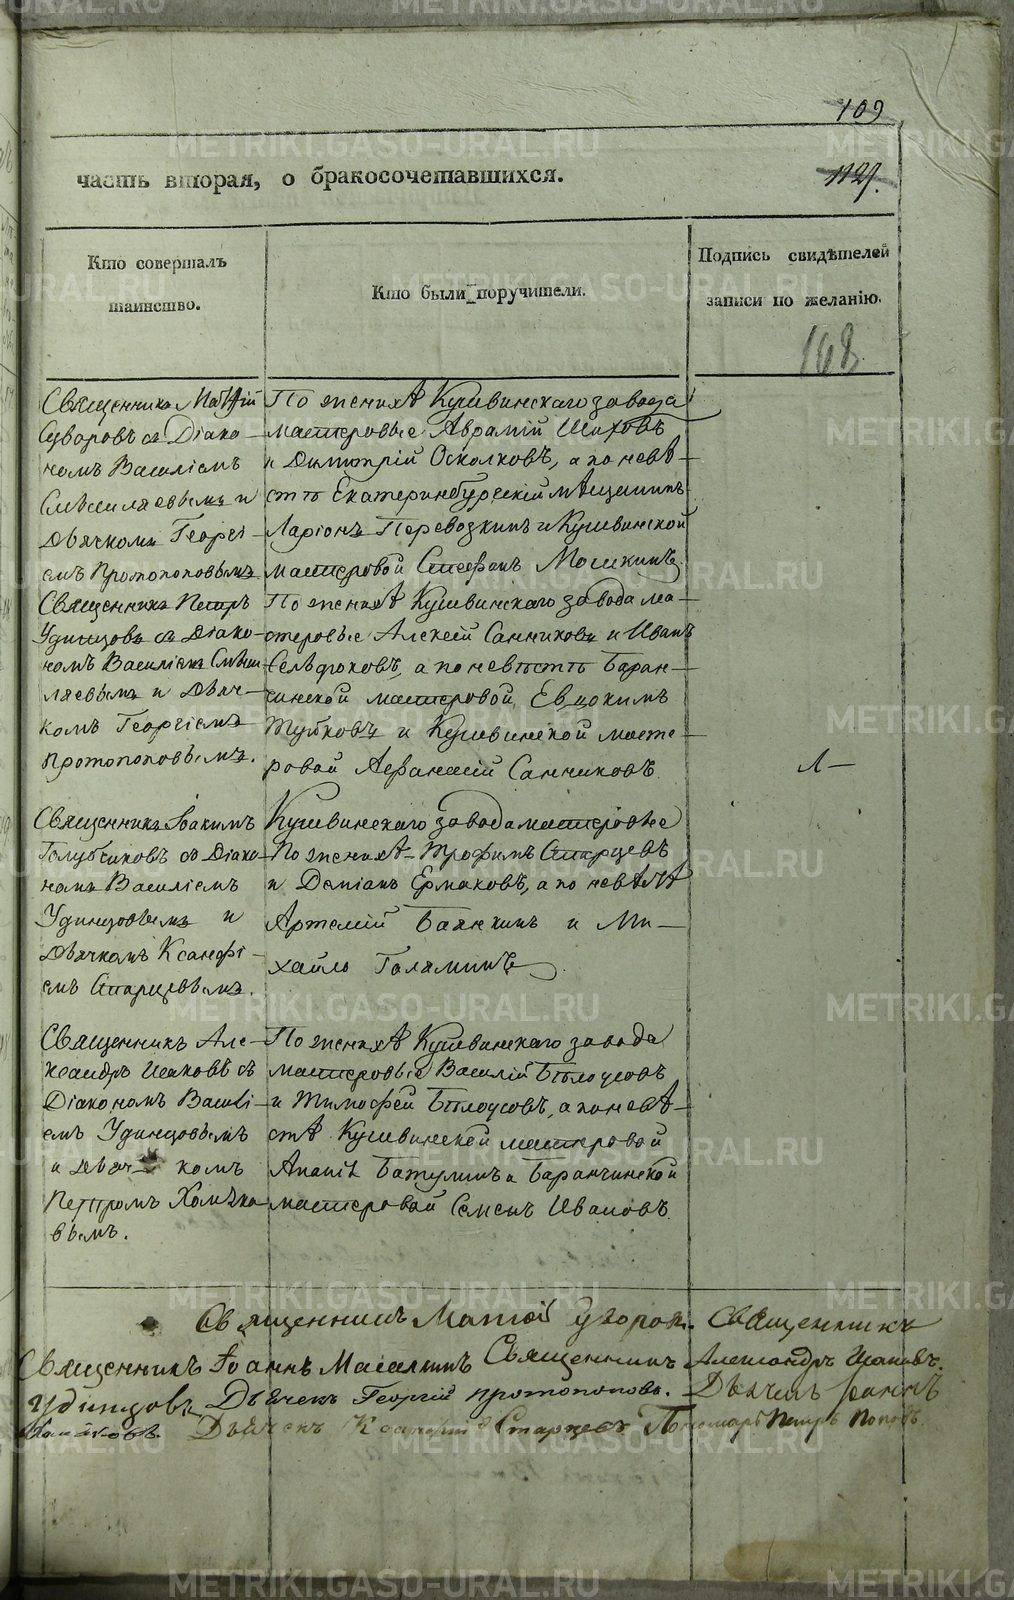 109
часть вторая, о бракосочетавшихся.
112
Кто совершалъ
таинство.
Кто были поручители.
Подпись свидѣтелей
записи по желанію.
168
Священникъ Матѳій
Суворовъ съ Діако-
номъ Василіемъ
и
Дьячкомъ Георгі-
емъ Протопоповымъ
По женихѣ Кушвинскаго завода
мастеровые Аврамій Шаховъ
и Димитрій Осколковъ, а по невѣ-
стѣ Екатеринбургскій мѣщанинъ
Ларіонъ Перевозкинъ и Кушвинской
мастеровой Стефанъ Мошкинъ
Священникъ Петръ
Удинцовъ съ Діако-
номъ Василіемъ
и Дьяч-
комъ Георгіемъ
Протопоповымъ.
По женихѣ Кушвинскаго завода ма-
стеровые Алексей Санниковъ и Иванъ
а по невѣстѣ Баран-
чинской мастеровой Евдокимъ
и Кушвинской масте-
ровой Афанасій Санниковъ
Священникъ Іоакимъ
съ Діако-
номъ Василіемъ
Удинцовымъ и
Дьячкомъ Ксанфі-
емъ Старцевымъ.
Кушвинскаго завода мастеровые
По женихѣ Трофимъ Старцевъ
и Деміанъ Ермаковъ, а по невѣстѣ
Артемій Баянкинъ и Ми-
хайло Галяминъ
Священникъ Але-
ксандръ Ишаковъ съ
Діакономъ Василі-
емъ Удинцовымъ
и Дьяч- комъ
Петромъ Хомяко-
вымъ.
По женихѣ Кушвинскаго завода
мастеровые Василій Бѣлоусовъ
и Тимофей Бѣлоусовъ, а по невѣ-
стѣ Кушвинской мастеровой
Ананій Батуминъ и Баранчинской
мастеровой Семенъ Ивановъ.
Священникъ Матѳій Суворовъ. Священникъ
Священникъ Іоаннъ Священникъ Александръ Ишаковъ.
Удинцовъ Дьячекъ Георгій Протопоповъ. Дьячекъ Іоаннъ
Дьячекъ Ксанфій Старцевъ Пономарь Петръ Поповъ.
METRIKI.GASO-URAL.RU